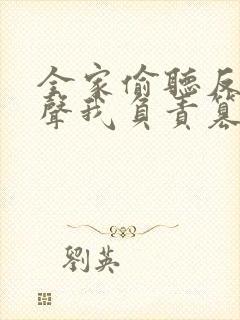 全家偷聽反
聲我負責篡
劉英